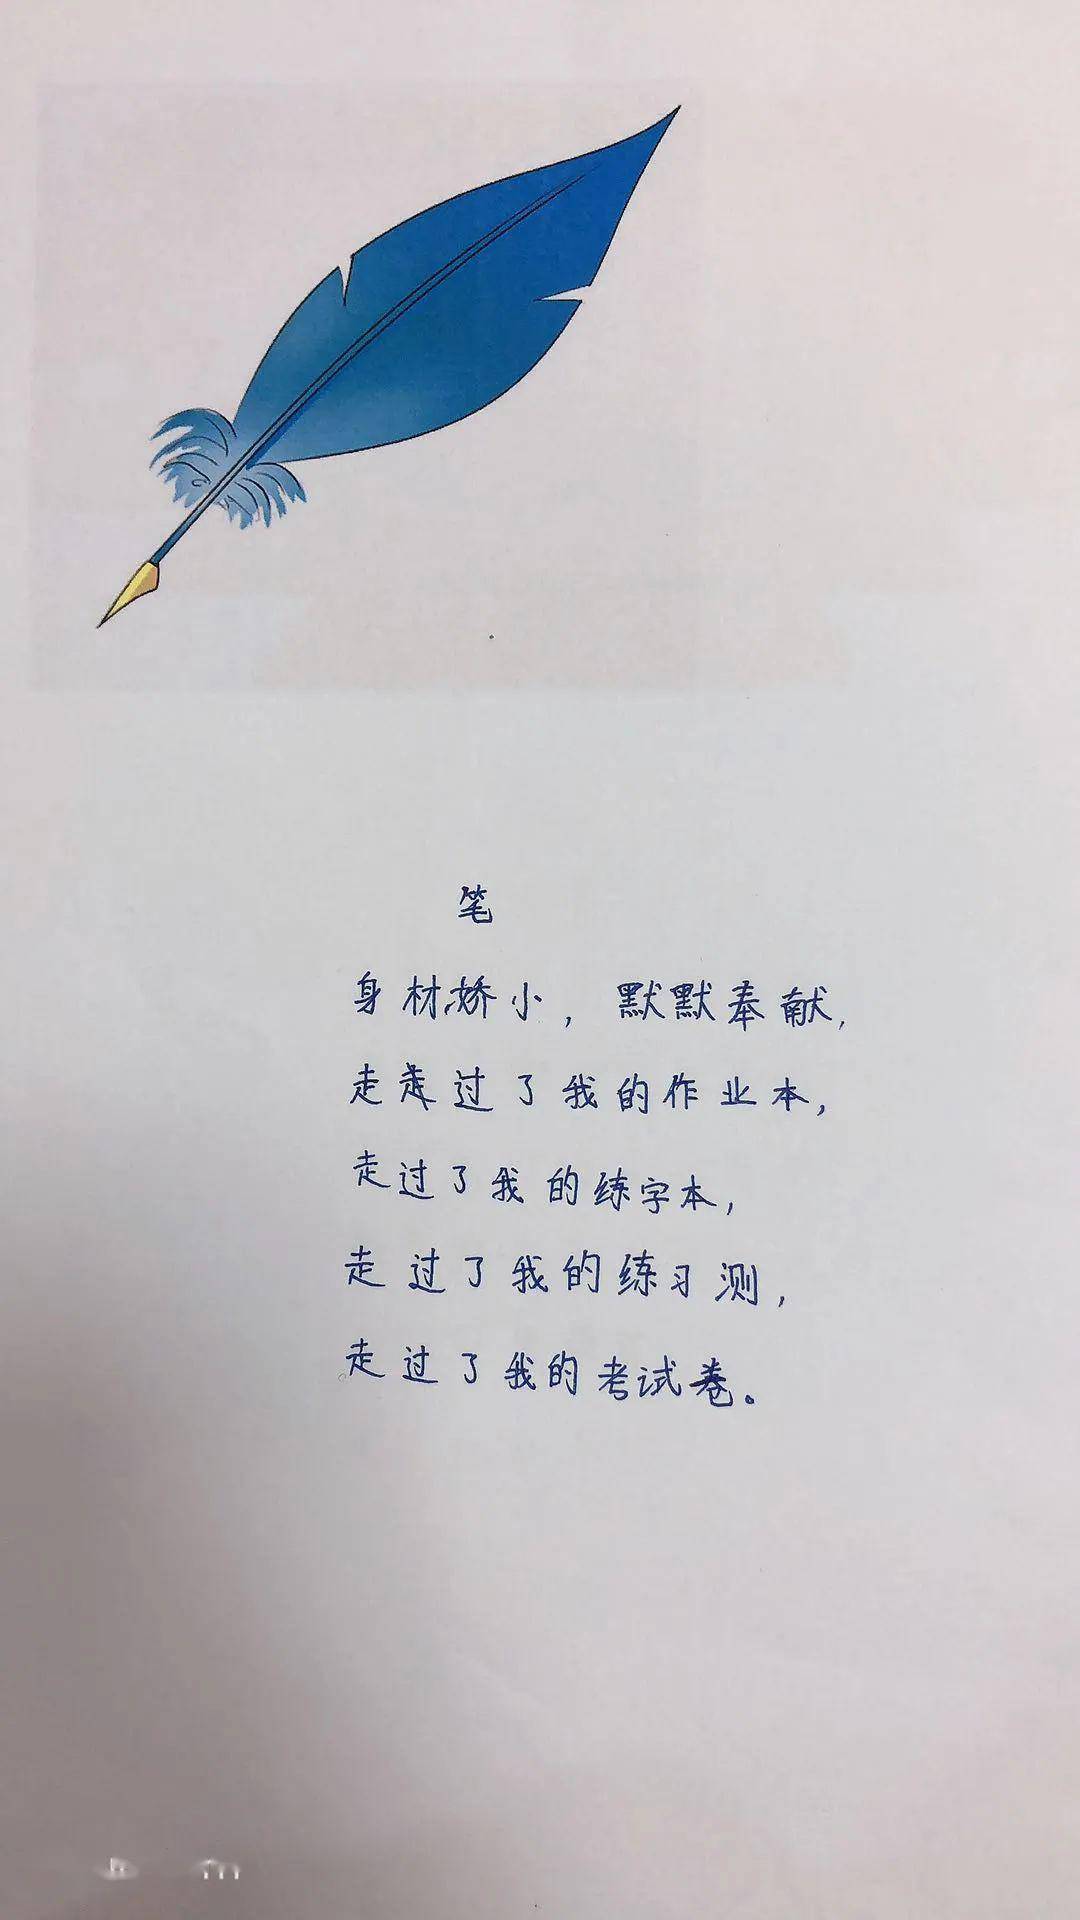 笔
身材娇小，默默奉献，
走走过了我的作业本，
走过了我的练字本，
走过了我的练习测，
走过了我的考试卷。